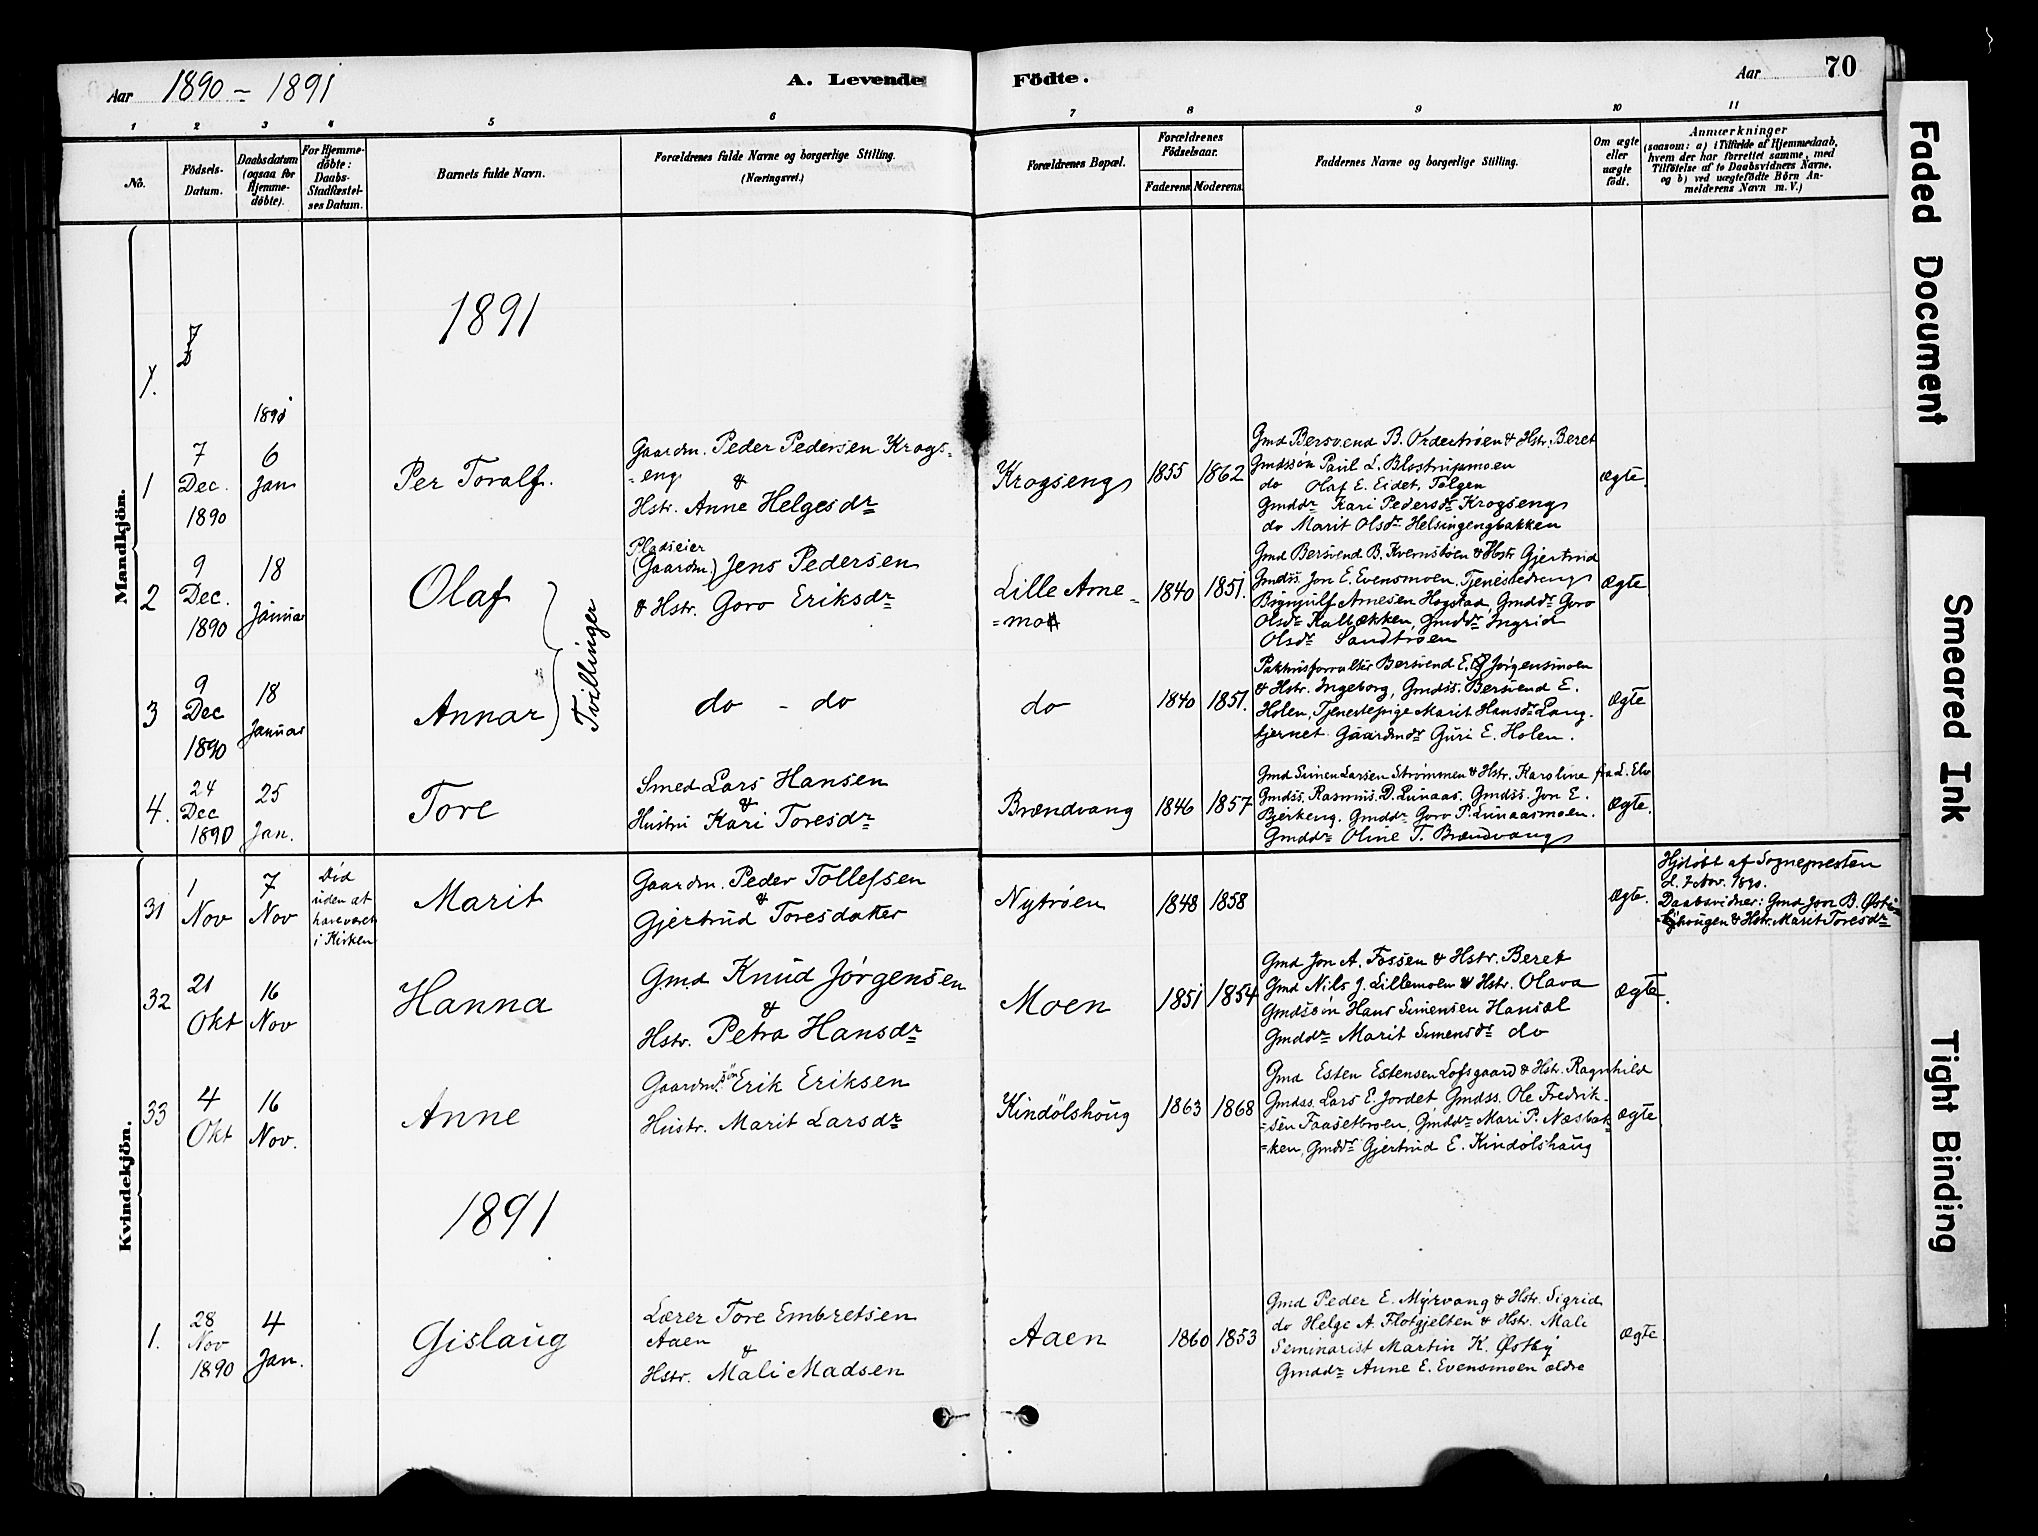 Aar 1890 - 1891
A. Levende Födte.
Aar
70
1 2 3 4 5 6 7 8 9 10 11
No.
Födsels-Datum.
Daabsdatum (ogsaa for Hjemme-döbte).
For Hjemme-döbte: Daabs-Stadfæstel-ses Datum.
Barnets fulde Navn.
Forældrenes fulde Navne og borgerlige Stilling. (Næringsvei.)
Forældrenes Bopæl.
Forældrenes Födselsaar.
Faderens. Moderens.
Faddernes Navne og borgerlige Stilling.
Om ægte eller uægte födt.
Anmærkninger
(saasom: a) i Tilfælde af Hjemmedaab,
hvem der har forrettet samme, med
Tilföielse af to Daabsvidners Navne.
og b) ved uægtefödte Börn An-
melderens Navn m. V.)
Mandkjön.
1891
1.
7
1891
1
7 Dec. 1890
6 Jan
Per Toralf.
Gaardm. Peder Pedersen Krogs-
=eng
&
Hstr. Anne Helgesdr
Krogseng
1855 1862
Gmd Bersvend B. Ordertrøen & Hstr. Beret
Gmdssön Paul L. Blostrupmoen
do Olaf E. Eidet, Tolgen
Gmddr Kari Pedersdr Krogseng
do Marit Olsdr Helsingengbakken
ægte.
2
9 Dec. 1890
18 Januar
Olaf
Tvillinger
Pladseier
(Gaardm.) Jens Pedersen
& Hstr. Goro Eriksdr
Lille Arne-
=mo
1840 1851.
Gmd Bersvend B. Kvernbøen & Hstr Gjertrud
Gmdss. Jon E. Evensmoen. Tjenestedreng
Brynjulf Arnesen Hogstad, Gmddr Goro
Olsdr Kalbækken, Gmddr Ingrid
Olsdr Sandtrøen
ægte
3
9 Dec 1890
18 Januar
Annar
do - do
do
1840 1851.
Pakhusforvalter Bersvend E. Jørgensmoen
& Hstr. Ingeborg, Gmdss. Bersvend E.
Holen, Tjenestepige Marit Hansdr Lang-
tjernet. Gaardmdr Guri E. Holen.
ægte
4.
24 Dec 1890
25 Jan.
Tore
Smed Lars Hansen
&
Hustru Kari Toresdr
Brændvang
1846 1857
Gmd Simen Larsen Strømmen & Hstr. Karoline fra L. Elv
Gmdss. Rasmus D. Lunaas. Gmdss. Jon E.
Bjerkeng. Gmddr Goro P. Lunaasmoen.
Gmddr Oline T. Brændvang
ægte.
Kvindekjön.
31
1 Nov
7 Nov
Död
uden at
have været
i Kirken
Marit
Gaardm. Peder Tollefsen
&
Gjertrud Toresdatter
Nytröen
1848 1858
ægte.
Hjdöbt af Sognepresten
d. 7 Nov. 1890.
Daabsvidner: Gmd Jon B. Østi-
hougen & Hstr. Marit Toresdr
32
21 Okt
16 Nov
Hanna
Gmd Knud Jørgensen
&
Hstr. Petra Hansdr
Moen
1851 1854
Gmd Jon A. Fossen & Hstr. Beret
Gmd Nils J. Lillemoen & Hstr. Olava
Gmdssön Hans Simensen Hansæl
Gmddr Marit Simensdr do
ægte.
33
4 Okt
16 Nov.
Anne
Gaardmssön Erik Eriksen
Hustr. Marit Larsdr
Kindölshoug
1863 1868
Gmd Esten Estensen Lofsgaard & Hstr. Ragnhild
Gmdss. Lars E. Jordet Gmdss. Ole Fredrik-
=sen Faasetbroen, Gmddr Mari P. Næsbak-
=ken, Gmddr Gjertrud E. Kindölshaug
ægte.
1891
1.
28 Nov 1890
4 Jan.
Gislaug
Lærer Tore Embretsen
Aaen
&
Hstr. Mali Madsen
Aaen
1860 1853
Gmd Peder E. Myrvang & Hstr. Sigrid
do Helge A. Flotgjelten & Hstr. Mali
Seminarist Martin K. Østby
Gmddr Anne E. Evensmoen ældre
ægte
Faded Document
Smeared Ink
Tight Binding